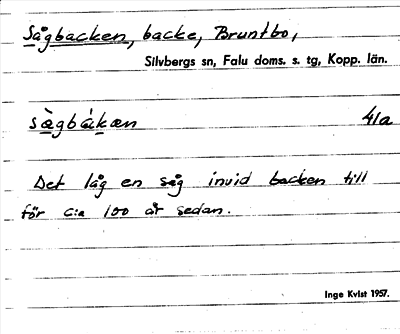 Sågbacken, backe, Bruntbo,
Silvbergs sn, Falu doms. s. tg, Kopp. län.
sàgbákæn 41a
Det låg en såg invid backen till
för c:a 100 år sedan.
Inge Kvist 1957.